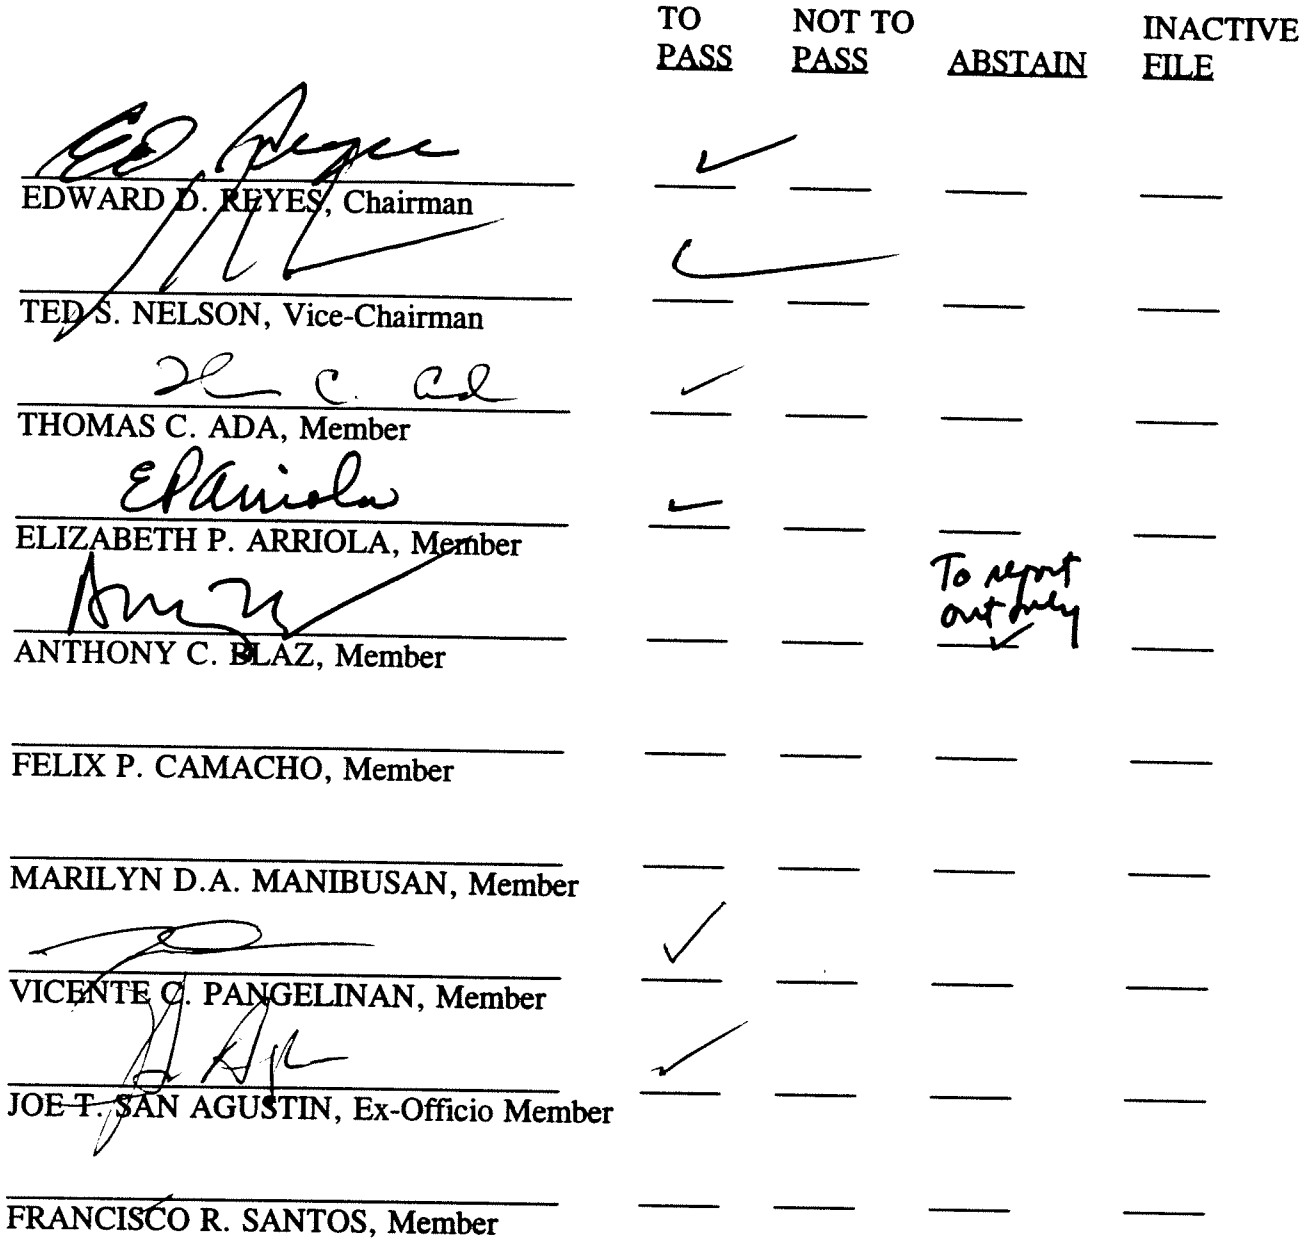 TO PASS NOT TO PASS ABSTAIN INACTIVE FILE
Ed Reyes
EDWARD D. REYES, Chairman
TED S. NELSON, Vice-Chairman
C. Ada
THOMAS C. ADA, Member
EPArriola
ELIZABETH P. ARRIOLA, Member
To report
out only
ANTHONY C. BLAZ, Member
FELIX P. CAMACHO, Member
MARILYN D.A. MANIBUSAN, Member
VICENTE C. PANGELINAN, Member
JOE T. SAN AGUSTIN, Ex-Officio Member
FRANCISCO R. SANTOS, Member